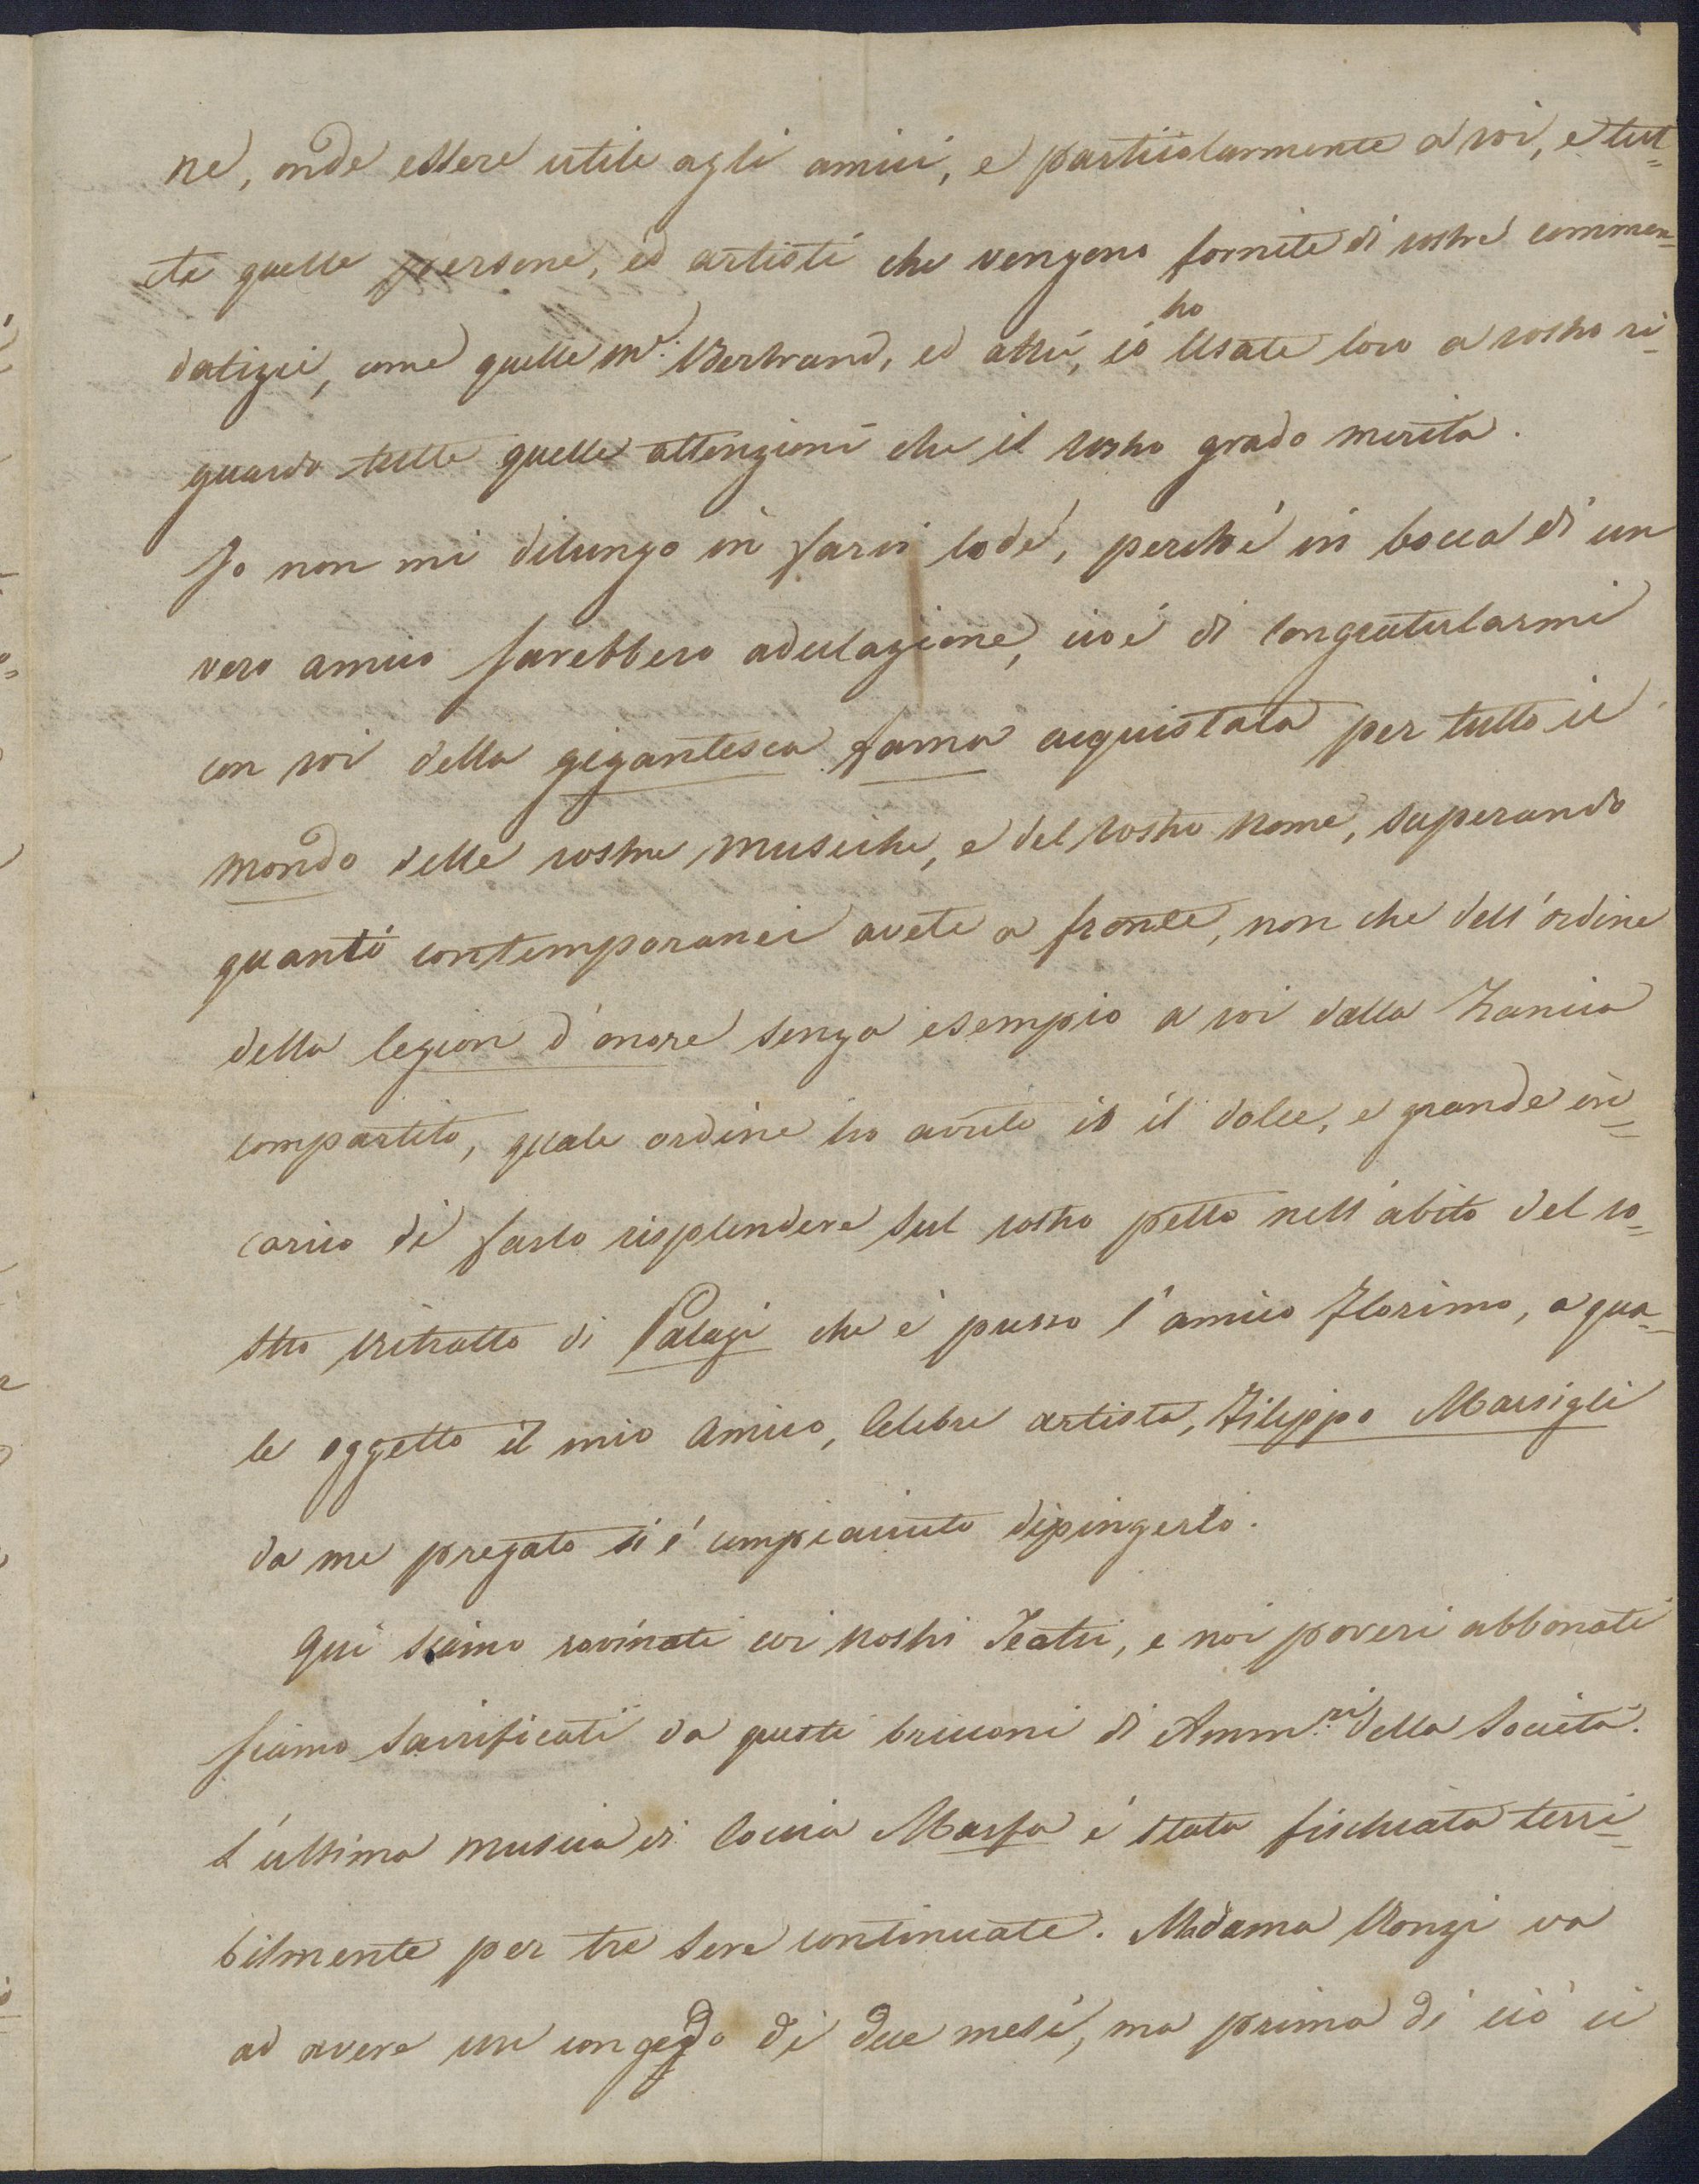 ne, onde essere utile agli amici, e particolarmente a voi, e tut=
te quelle persone, ed artisti che vengono fornite di vostre commen=
datizie, come quelle Mr: Bertrand, ed altri, io ho usate loro a vostro ri=
guardo tutte quelle attenzioni che il vostro grado merita.
Io non mi dilungo in farvi lode, perchè in bocca di un
vero amico sarebbero adulazione, cioè di congratularmi
con voi della gigantesca fama acquistata per tutto il
mondo delle vostre musiche, e del vostro nome, superando
quanti contemporanei avete a fronte, non che dell'ordine
della legion d'onore senza esempio a voi dalla Francia
compartito, quale ordine ho avuto io il dolce, e grande in=
carico di farlo risplendere sul vostro petto nell'abito del vo=
stro ritratto di Palagi che è presso l'amico Florimo, a qua=
le oggetto il mio amico, celebre artista, Filippo Marsigli
da me pregato si è compiaciuto dipingerlo.
Qui siamo rovinati coi nostri Teatri, e noi poveri abbonati
siamo sacrificati da questi bricconi di Ammri della Società.
L'ultima musica di Coccia Marfa è stata fischiata terri=
bilmente per tre sere continuate. Madama Ronzi va
ad avere un congedo di due mesi, ma prima di ciò ci